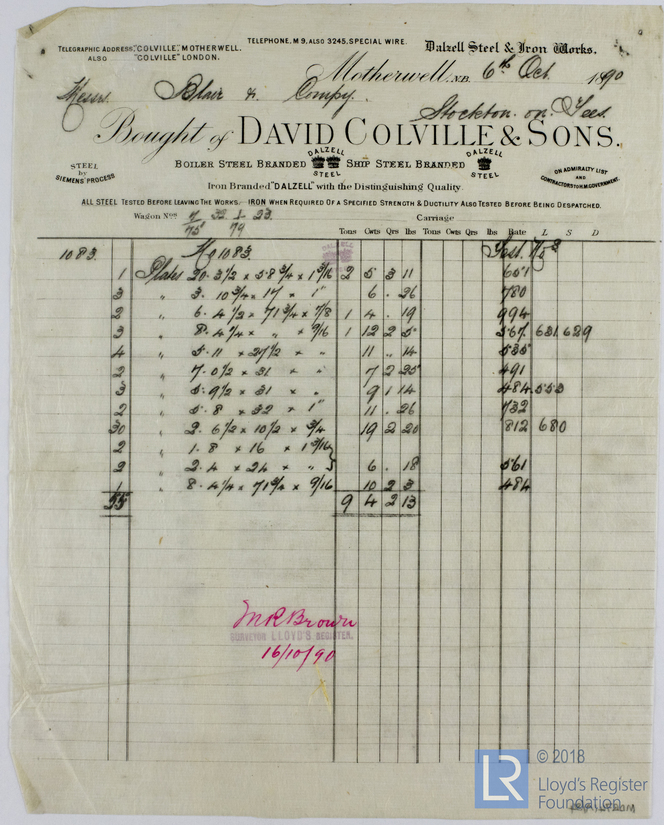 TELEPHONE, M 9, ALSO 3245, SPECIAL WIRE.
TELEGRAPHIC ADDRESS, "COLVILLE", MOTHERWELL.
ALSO "COLVILLE" LONDON.
Dalzell Steel & Iron Works.
Motherwell, N.B. 6th Oct. 1890
Messrs. Blair & Compy.
Stockton-on-Tees.
Bought of DAVID COLVILLE & SONS.
STEEL by SIEMENS' PROCESS
BOILER STEEL BRANDED DALZELL STEEL SHIP STEEL BRANDED DALZELL STEEL
ON ADMIRALTY LIST AND CONTRACTORS FOR H.M. GOVERNMENT.
Iron Branded "DALZELL" with the Distinguishing Quality.
ALL STEEL TESTED BEFORE LEAVING THE WORKS. IRON WHEN REQUIRED OF A SPECIFIED STRENGTH & DUCTILITY ALSO TESTED BEFORE BEING DESPATCHED.
Wagon Nos
Carriage
Tons Cwts Qrs lbs Tons Cwts Qrs lbs Rate L S D
1083 No 1083 Test Nos
1 Plates 20. 3 1/2 x 58 3/4 x 1 3/16 2 5 3 11 651
3 " 3. 10 3/4 x 17 x 1" 6 . 26 780
2 " 6. 4 1/2 x 71 3/4 x 7/8 1 4 . 19 994
3 " 8. 4 1/4 x " x 9/16 1 12 2 5 567. 631. 629
4 " 5. 11 x 27 1/2 x " 11 " 14 535
2 " 7. 0 1/2 x 31 x " 7 2 25 491
3 " 5. 9 1/2 x 31 x " 9 1 14 484. 553
2 " 5. 8 x 32 x 1" 11 . 26 732
30 " 2. 6 1/2 x 10 1/2 x 3/4 19 2 20 812 680
2 " 1. 8 x 16 x 1 3/16
2 " 2. 4 x 24 x " 6 . 18 561
1 " 8. 4 1/4 x 71 3/4 x 9/16 10 2 3 484
55 9 4 2 13
M R Brown
SURVEYOR LLOYD'S REGISTER.
16/10/90
LR © 2018
Lloyd's Register
Foundation